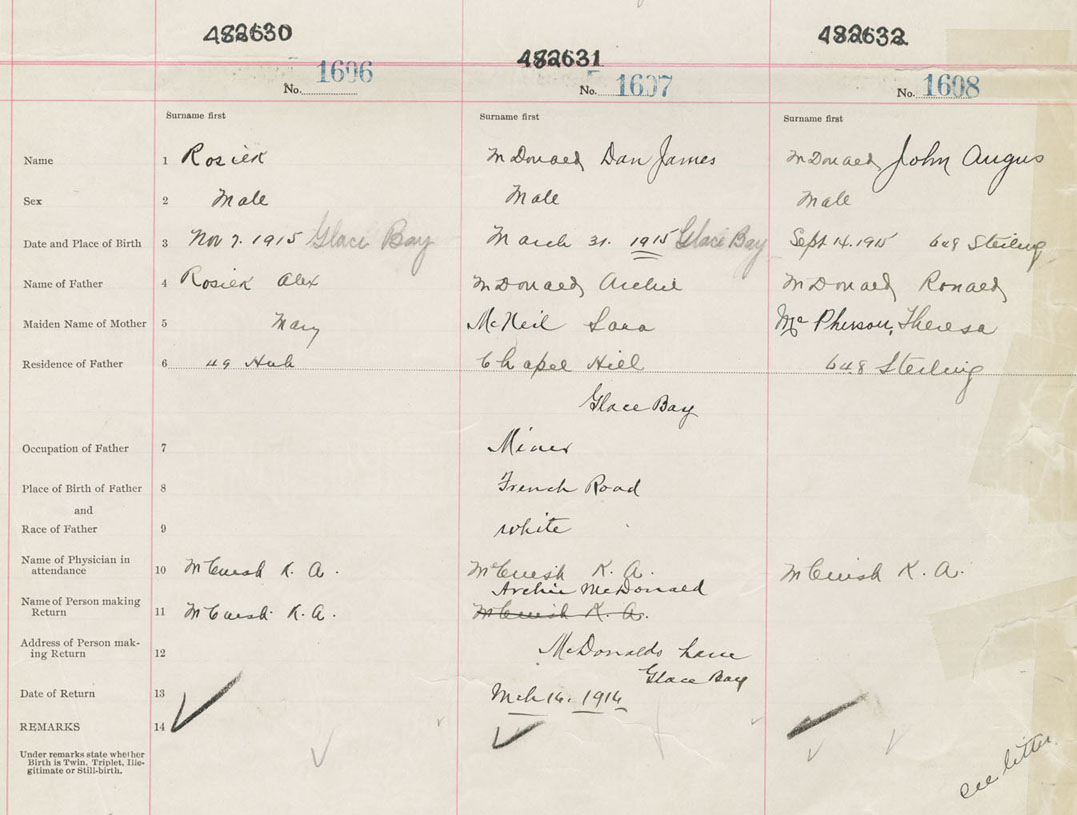 482630 482631 482632
No. 1606 No. 1607 No. 1608
Surname first Surname first Surname first
Name 1 Rosiek McDonald, Dan James McDonald, John Angus
Sex 2 Male Male Male
Date and Place of Birth 3 Nov 7. 1915 Glace Bay March 31. 1915 Glace Bay Sept 14. 1915 648 Sterling
Name of Father 4 Rosiek Alex McDonald, Archie McDonald, Ronald
Maiden Name of Mother 5 Mary McNeil Sara McPherson, Theresa
Residence of Father 6 49 Hub Chapel Hill 648 Sterling
Glace Bay
Occupation of Father 7 Miner
Place of Birth of Father 8 French Road
and
Race of Father 9 white
Name of Physician in
attendance 10 McCuish K. A. McCuish K. A. McCuish K. A.
Archie McDonald
Name of Person making
Return 11 McCuish K. A. McCuish K. A.
Address of Person mak-
ing Return 12 McDonalds Lane
Glace Bay
Date of Return 13 Mch 16. 1916
REMARKS 14
Under remarks state whether
Birth is Twin, Triplet, Ille-
gitimate or Still-birth.
see letter